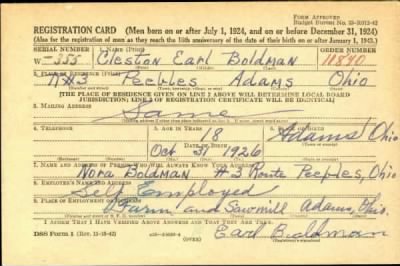 FORM APPROVED
Budget Bureau No. 33-R012-42
REGISTRATION CARD (Men born on or after July 1, 1924, and on or before December 31, 1924)
(Also for the registration of men as they reach the 18th anniversary of the date of their birth on or after January 1, 1943.)
SERIAL NUMBER 1. NAME (Print) ORDER NUMBER
W-355 Cleston Earl Boldman 11840
2. PLACE OF RESIDENCE (Print)
#3 Peebles Adams Ohio
[THE PLACE OF RESIDENCE GIVEN ON LINE 2 ABOVE WILL DETERMINE LOCAL BOARD
JURISDICTION; LINE 2 OF REGISTRATION CERTIFICATE WILL BE IDENTICAL]
3. MAILING ADDRESS
Same
4. TELEPHONE 5. AGE IN YEARS 6. PLACE OF BIRTH
18 Adams
DATE OF BIRTH
Oct 31 1926 Ohio
7. NAME AND ADDRESS OF PERSON WHO WILL ALWAYS KNOW YOUR ADDRESS
Nora Boldman #3 Route Peebles, Ohio
8. EMPLOYER'S NAME AND ADDRESS
Self Employed
9. PLACE OF EMPLOYMENT OR BUSINESS
Farm and Sawmill Adams, Ohio.
I AFFIRM THAT I HAVE VERIFIED ABOVE ANSWERS AND THAT THEY ARE TRUE.
DSS Form 1 (Rev. 11-16-42) (OVER) Earl Boldman